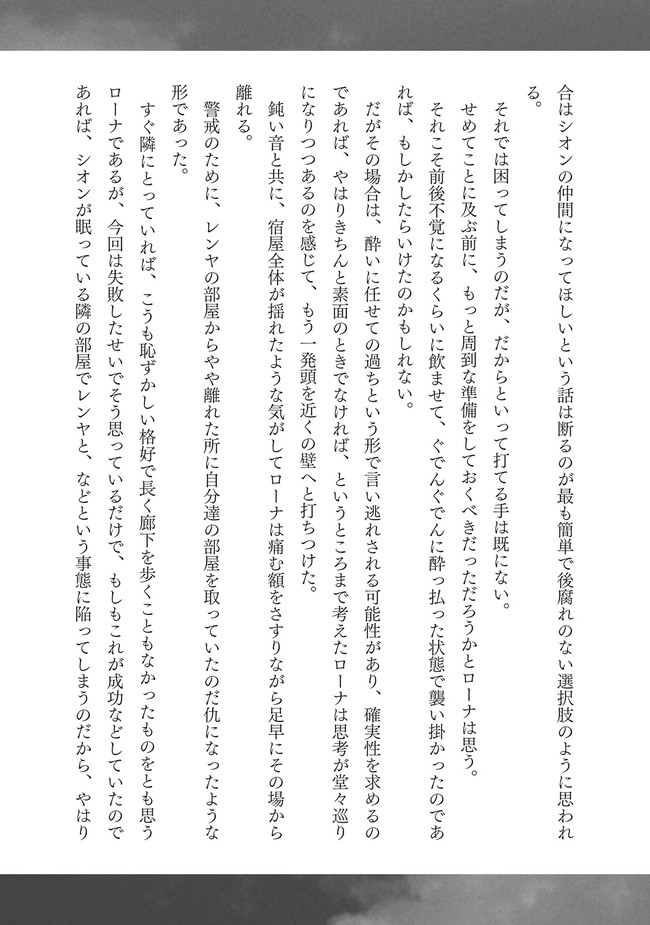 合はシオンの仲間になってほしいという話は断るのが最も簡単で後腐れのない選択肢のように思われ
る。
　それでは困ってしまうのだが、だからといって打てる手は既にない。
　せめてことに及ぶ前に、もっと周到な準備をしておくべきだっただろうかとローナは思う。
　それこそ前後不覚になるくらいに飲ませて、ぐでんぐでんに酔っ払った状態で襲い掛かったのであ
れば、もしかしたらいけたのかもしれない。
　だがその場合は、酔いに任せての過ちという形で言い逃れされる可能性があり、確実性を求めるの
であれば、やはりきちんと素面のときでなければ、というところまで考えたローナは思考が堂々巡り
になりつつあるのを感じて、もう一発頭を近くの壁へと打ちつけた。
　鈍い音と共に、宿屋全体が揺れたような気がしてローナは痛む額をさすりながら足早にその場から
離れる。
　警戒のために、レンヤの部屋からやや離れた所に自分達の部屋を取っていたのだ仇になったような
形であった。
　すぐ隣にとっていれば、こうも恥ずかしい格好で長く廊下を歩くこともなかったものをとも思う
ローナであるが、今回は失敗したせいでそう思っているだけで、もしもこれが成功などしていたので
あれば、シオンが眠っている隣の部屋でレンヤと、などという事態に陥ってしまうのだから、やはり